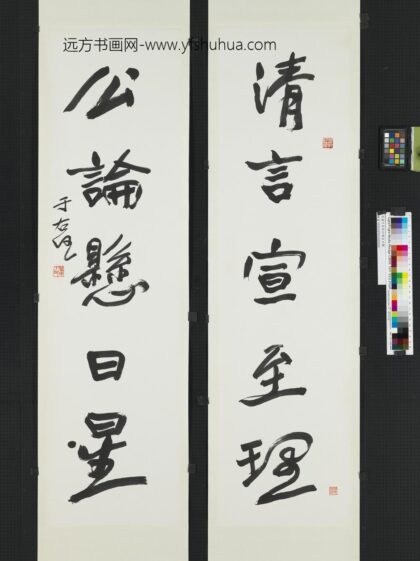 远方书画网-www.yfshuhua.com
清言宣至理
公論懸日星
于右任